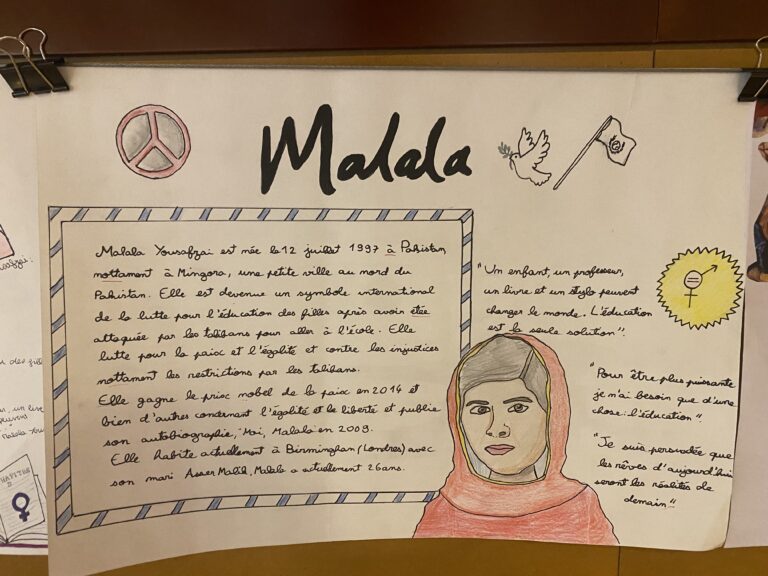 Malala
Malala Yousafzai est née le 12 juillet 1997 à Pakistan
nottament à Mingora, une petite ville au nord du
Pakistan. Elle est devenue un symbole international
de la lutte pour l'éducation des filles après avoir étée
attaquée par les talibans pour aller à l'école. Elle
lutte pour la paix et l'égalité et contre les injustices
nottament les restrictions par les talibans.
Elle gagne le prix nobel de la paix en 2014 et
bien d'autres concernant l'égalité et le liberté et publie
son autobiographie, "Moi, Malala en 2009.
Elle habite actuellement à Birmingham (Londres) avec
son mari Asser Malik, Malala a actuellement 26 ans.
"Un enfant, un professeur,
un livre et un stylo peuvent
changer le monde. L'éducation
est la seule solution".
"Pour être plus puissante
je n'ai besoin que d'une
chose: l'éducation"
"Je suis persuadée que
les rêves d'aujourd'hui
seront les réalités de
demain"